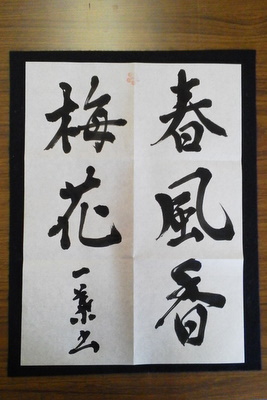 春風香
梅花
一葉书